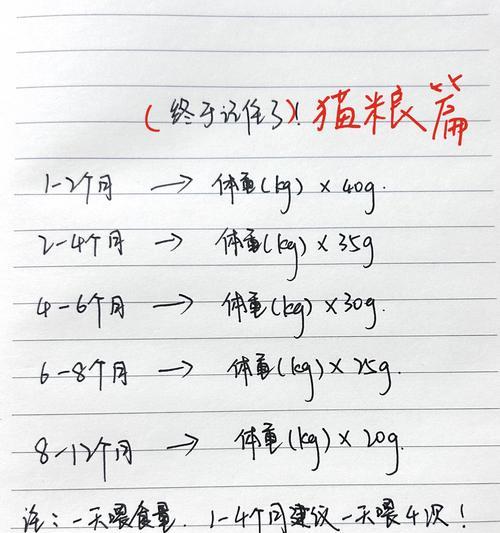 (终于记住了)!猫粮篇
1-2个月 → 体重(kg) × 40g.
2-4个月 → 体重(kg) × 35g
4-6个月 → 体重(kg) × 30g.
6-8个月 → 体重(kg) × 25g.
8-12个月 → 体重(kg) × 20g.
注:一天喂食量. 1-4个月建议一天喂4次!